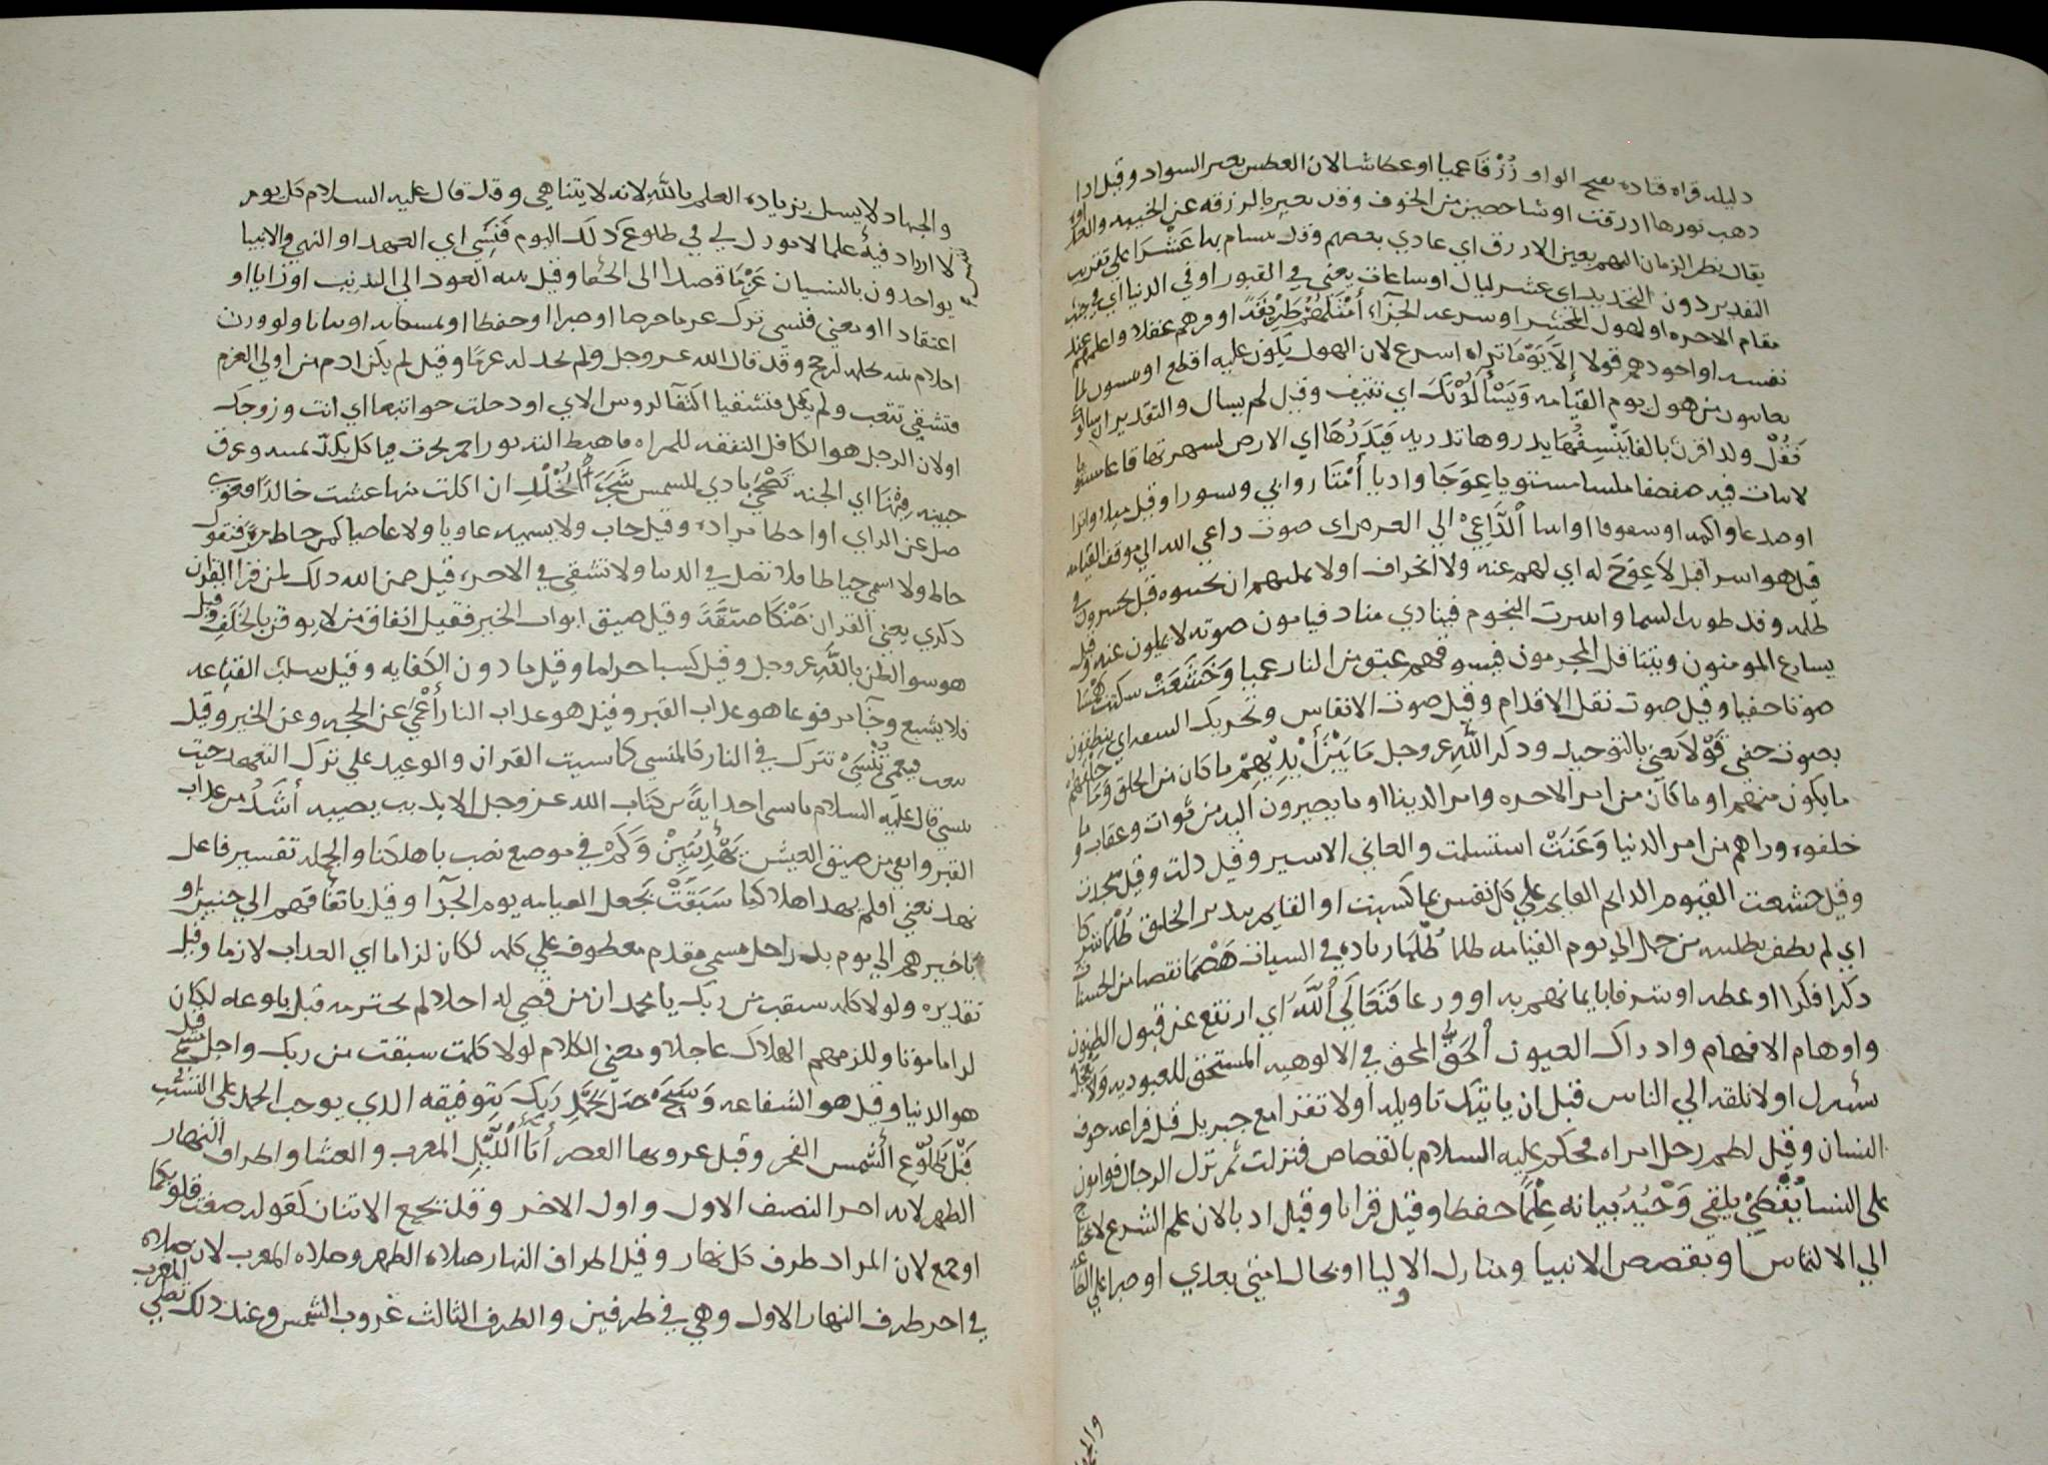 دليله قراه قتاده بفتح الواو زُرْقًا عميا او عطاشا لان العطس يغير السواد وقيل اذا
دهب نورها ازرقت او شاخصين من الخوف وقد يعبر بالزرقه عن الخيبه
يقال نظر الزمان اليهم بعين الازرق اي عادي بعضهم عَشْرًا علي تقريب
التقدير دون التحديد اي عشر ليال او ساعات يعني في القبور او في الدنيا اي في جنب
مقام الاخره او لهول المحشر او سرعه الجزآء أَمْثَلُهُمْ طَرِيقَةً اوفرهم عقلا واعلمهم عند
نفسه او اجودهم قولا إِلاَّ يَوْمًا تراه اسرع لان الهول يكون عليه اقطع
من هول يوم القيامه وَيَسْأَلُونَكَ اي ثقيف وقيل لم يسال والتقدير ان سالوك
فَقُلْ ولذا قرن بالفا يَنْسِفُهَا يدروها تدريه فَيَذَرُهَا اي الارض لشهرتها قاعا
لانبات فيه صفصفا ملسا مستويا عِوَجًا واديا أَمْتًا روابي وسورا وقيل ميلا
او صدعا واكمه الدَّاعِيَ الي العرض اي صوت داعي الله الي موقف القيامه
قيل هو اسرافيل لاَ عِوَجَ له اي لهم عنه ولا انحراف اولا
ظلمه وقد طويت السما وانتثرت النجوم فينادي مناد فيامون صوته لا يميلون عنه
يسارع المومنون ويتثاقل المجرمون فيسوقهم عنق من النار عميا وَخَشَعَتْ سكتت هَمْسًا
صوتا خفيا وقيل صوت نقل الاقدام وقيل صوت الانفاس وتحريك
بصوت خفي قَوْلاً يعني بالتوحيد وذكر اللَّه عز وجل مَا بَيْنَ أَيْدِيهِمْ ما كان من الخلق وَمَا خَلْفَهُمْ
ما يكون منهم او ما كان من امر الاخره وامر الدينا او ما يصيرون اليه من ثواب وعقاب وما
خلفوه وراهم من امر الدنيا وَعَنَتْ استسلمت والعاني الاسير وقيل ذلت وقيل سجدت
وقيل خشعت القيوم الدايم القايم علي كل نفس بما كسبت او القايم بتدبير الخلق ظُلْمًا شركا
اي لم يظفر بطلبه من حمل الي يوم القيامه ظلما ظُلْمًا زياده في السيات هَضْمًا نقصا من الحسنات
ذكرا فكرا او عظه او شرفا بايمانهم به او ورعا فَتَعَالَي اللَّهُ اي ارتفع عن قبول الظنون
واوهام الافهام وادراك العيون الْحَقُّ المحق في الالوهيه المستحق للعبوديه وَلاَ تَعْجَلْ
اولا تلقه الي الناس قبل ان ياتيك تاويله اولا تقرا مع جبريل قبل فراغه خوف
النسيان وقيل لطم رجل امراه فحكم عليه السلام بالقصاص فنزلت ثم نزل الرجال قوامون
علي النسا يُقْضَيْ يلقي وَحْيُهُ بيانه عِلْمًا حفظا وقيل قرانا وقيل ادبا لان علم الشرع لا يحتاج
الي الالتماس او بقصص الانبيا ومنازل الاوليا او بحال امتي بعدي او صبرا علي الطاعه
والجهاد
والجهاد لا يسل بزياده العلم باللَّه لانه لا يتناهي وقد قال عليه السلام كل يوم
لا ازداد فيه علما لا بورك لي في طلوع كذلك اليوم فَنَسِيَ اي العهد او النهي والانبيا
يواخذون بالنسيان عَزْمًا قصدا الي الخطا وقيل نيه العود الي الذنب او رايا او
اعتقادا او معني فنسي ترك عزما حزما او صبرا او حفظا او تمسكا به او ثباتا ولو وزن
احلام بنيه بحلمه لرجح وقد قال الله عز وجل ولم نجد له عزمًا وقيل لم يكن ادم من اولي العزم
فتشقي تتعب ولم يقل فتشقيا اكتفآ لروس الاي او دخلت حوا تبعا اي انت وزوجك
او لان الرجل هو الكافل النفقه للمراه فاهبط اليه ثور احمر يحرث فياكل بكدّ يمينه وعرق
جبينه فِيْهَا اي الجنه تَضْحَيْ بادي للشمس شَجَرَةِ الْخُلْدِ ان اكلت منها عشت خالدًا فغوي
ضل عن الراي او اخطا مراده وقيل خاب ولا نسميه غاويا ولا عاصيا كمن خاط مره فنقول
خاط ولا اسمي خياطا فلا تضل في الدنيا ولا تشقي في الاخره قيل ضمن الله ذلك لمن قرا القران
ذكري يعني القران ضَنْكًا ضيّقة وقيل ضيق ابواب الخير فقيل انفاق من لا يوقن بالخَلَفِ وقيل
هو سو الظن باللَّه عز وجل وقيل كسبا حراما وقيل ما دون الكفايه وقيل سلبت القناعه
فلا يشبع وجآ مرفوعا هو عذاب القبر وقيل هو عذاب النار أَعْمَيْ عن الحجه وعن الخير وقيل
فيعمي تُنْسَيْ تترك في النار كالمنسي كما نسيت القران والوعيد علي ترك التعهد حيث
ينسي قال عليه السلام ما نسي احد ايةً من كتاب الله عز وجل الا بذنب يصيبه أَشَدُّ من عذاب
القبر وابقي من ضيق العيش يَهْدِ يُبَيِّنْ وَكَمْ في موضع نصب باهلكنا والجمله تفسير فاعل
نهد يعني افلم يهد اهلاكنا سَبَقَتْ بجعل العيامه يوم الجزآ وقيل باتفاقهم الي حنين او
تاخيرهم الي يوم بدر اجل مسمي مقدم معطوف علي كلمه لكان لزاما اي العذاب لازما وقيل
تقديره ولولا كلمه سبقت من ربك يا محمد ان من قضي له اجلا لم يخترمه قبل بلوغه لكان
لزاما موتا وللزمهم الهلاك عاجلا ومعني الكلام لولا كلمت سبقت من ربك واجل مسمي قيل
هو الدنيا وقيل هو الشفاعه وَسَبِّحْ صَلّ بِحَمْدِ رَبِّكَ بتوفيقه الذي يوجب الحمد علي التسبيب
قَبْلَ طُلُوْعِ الشَّمْسِ الفجر وقبل غروبها العصر أَنَآءَ اللَّيْلِ المغرب والعشا واطراف النهار
الظهر لانه اخر النصف الاول واول الاخر وقد تجمع الاثنان كقوله صغت قلوبكما
او جمع لان المراد طرف كل نهار وقيل اطراف النهار صلاه الظهر وصلاه المغرب لان صلاه
في اخر طرف النهار الاول وهي في طرفين والطرف الثالث غروب الشمس وعند ذلك تصلي المغرب